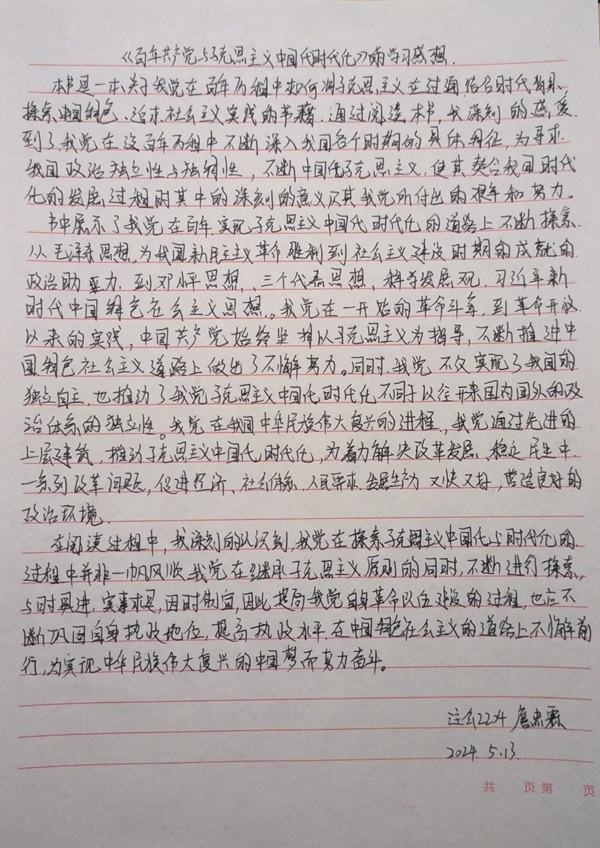 《百年共产党与马克思主义中国化时代化》的学习感想.
本书是一本关于我党在百年历程中如何将马克思主义在过面结合时代背景、
探索中国特色、追求社会主义实践的书籍。通过阅读本书,我深刻的感受
到了我党在这百年历程中不断深入我国各个时期的具体特征,为寻求
我国政治独立性与独特性,不断中国化马克思主义,使其契合我国时代
化的发展过程时其中的深刻的意义及其我党所付出的艰辛和努力。
书中展示了我党在百年实现马克思主义中国化时代化的道路上不断探索.
从毛泽东思想,为我国新民主主义革命胜利到社会主义建设时期的成就的
政治助力.到邓小平思想、三个代表思想,科学发展观.习近平新
时代中国特色社会主义思想.。我党在一开始的革命斗争,到革命开放
以来的实践,中国共产党始终坚持以马克思主义为指导,不断推进中
国特色社会主义道路上做出了不懈努力。同时,我党不仅实现了我国的
独立自主.也推动了我党马克思主义中国化时代化不同于以往开来国内国外的政
治体系的独立性。我党在我国中华民族伟大复兴的进程,我党通过先进的
上层建筑,推动马克思主义中国化时代化,为着力解决改革发展、稳定民生中.
一系列改革问题,促进经济、社会体系、人民要求、发展生动又快又好,营造良好的
政治环境.
在阅读过程中,我深刻的认识到,我党在探索马克思主义中国化与时代化的
过程中并非一帆风顺.我党在继承马克思主义原则的同时,不断进行探索,
与时俱进,实事求是,因时制宜,因此提高我党自身革命队伍建设的过程,也应不
断巩固自身执政地位,提高执政水平.在中国特色社会主义的道路上不懈前
行,为实现中华民族伟大复兴的中国梦而努力奋斗。
注会2204 詹忠霖
2024.5.13.
共 页第 页